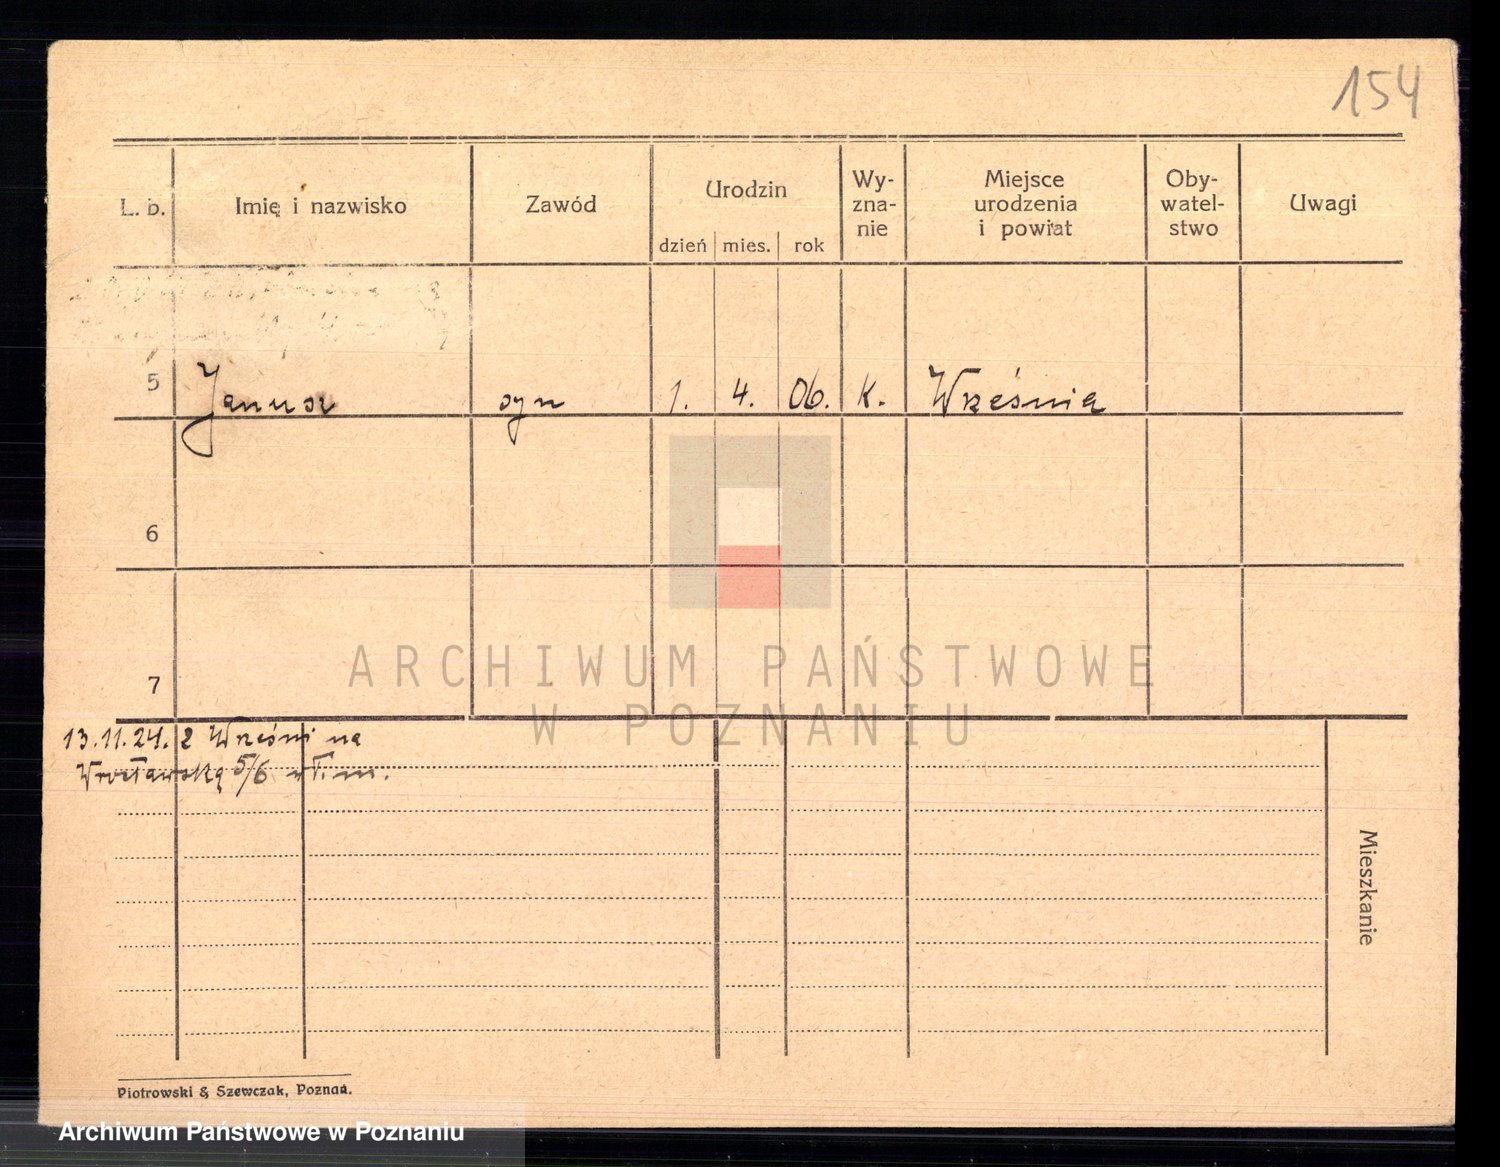 154
L. b. Imię i nazwisko Zawód Urodzin Wy-zna-nie Miejsce urodzenia i powiat Oby-watel-stwo Uwagi
dzień mies. rok
5 Janusz syn 1. 4. 06. k. Września
6
7
ARCHIWUM PAŃSTWOWE
W POZNANIU
13.11.24. z Wrześni na
Wrocławską 5/6
Mieszkanie
Piotrowski & Szewczak, Poznań.
Archiwum Państwowe w Poznaniu